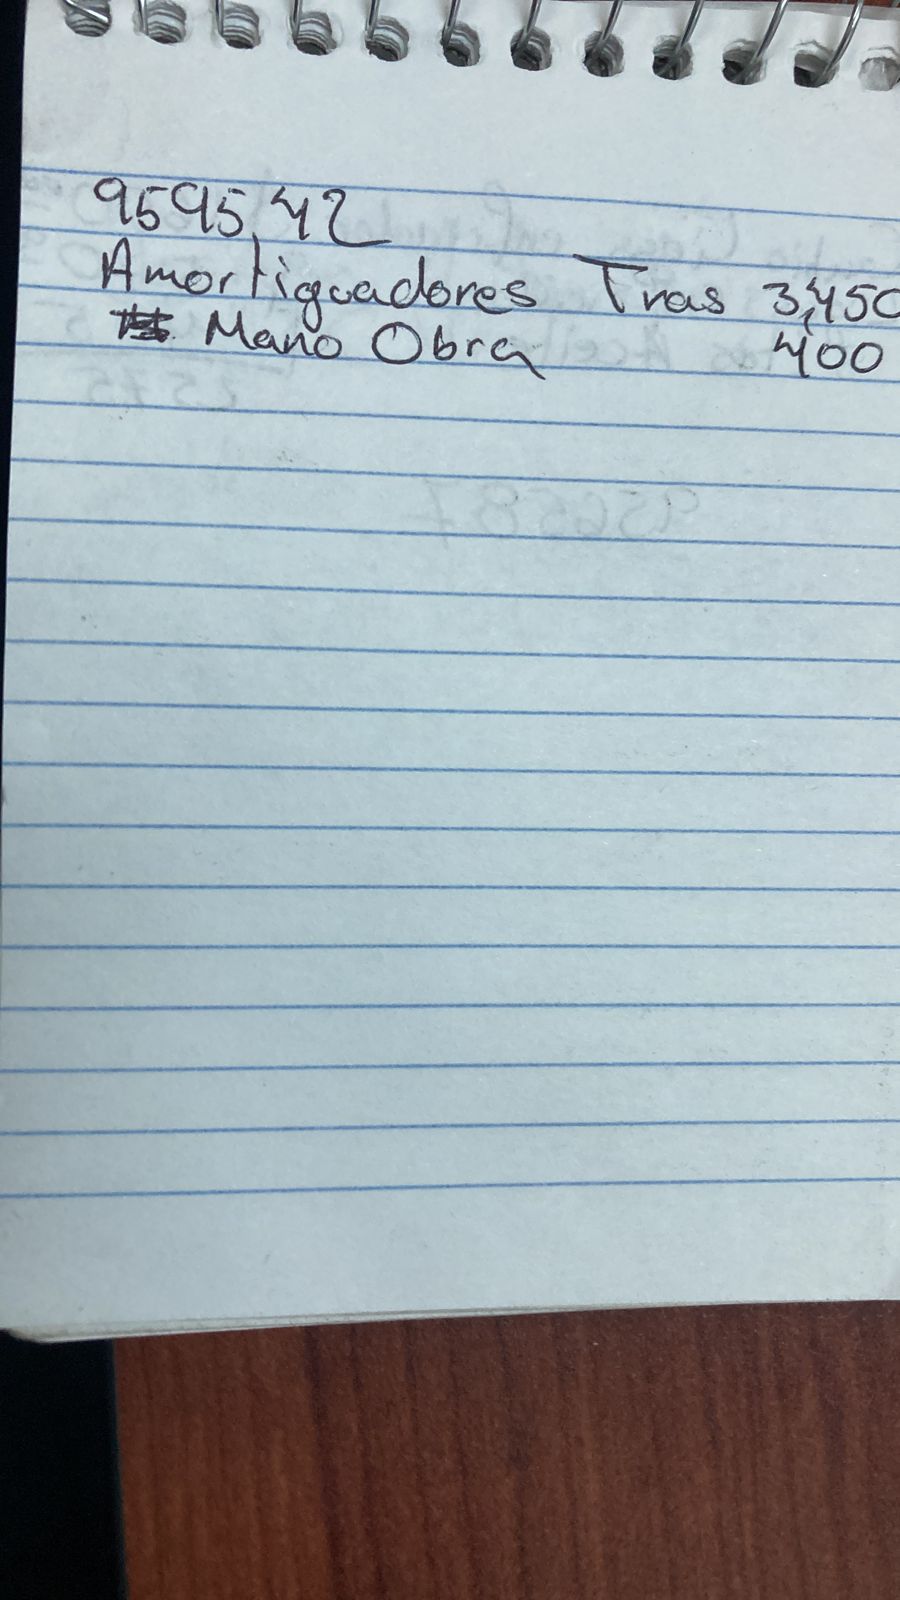 959542
Amortiguadores Tras 3,450
Mano Obra 400